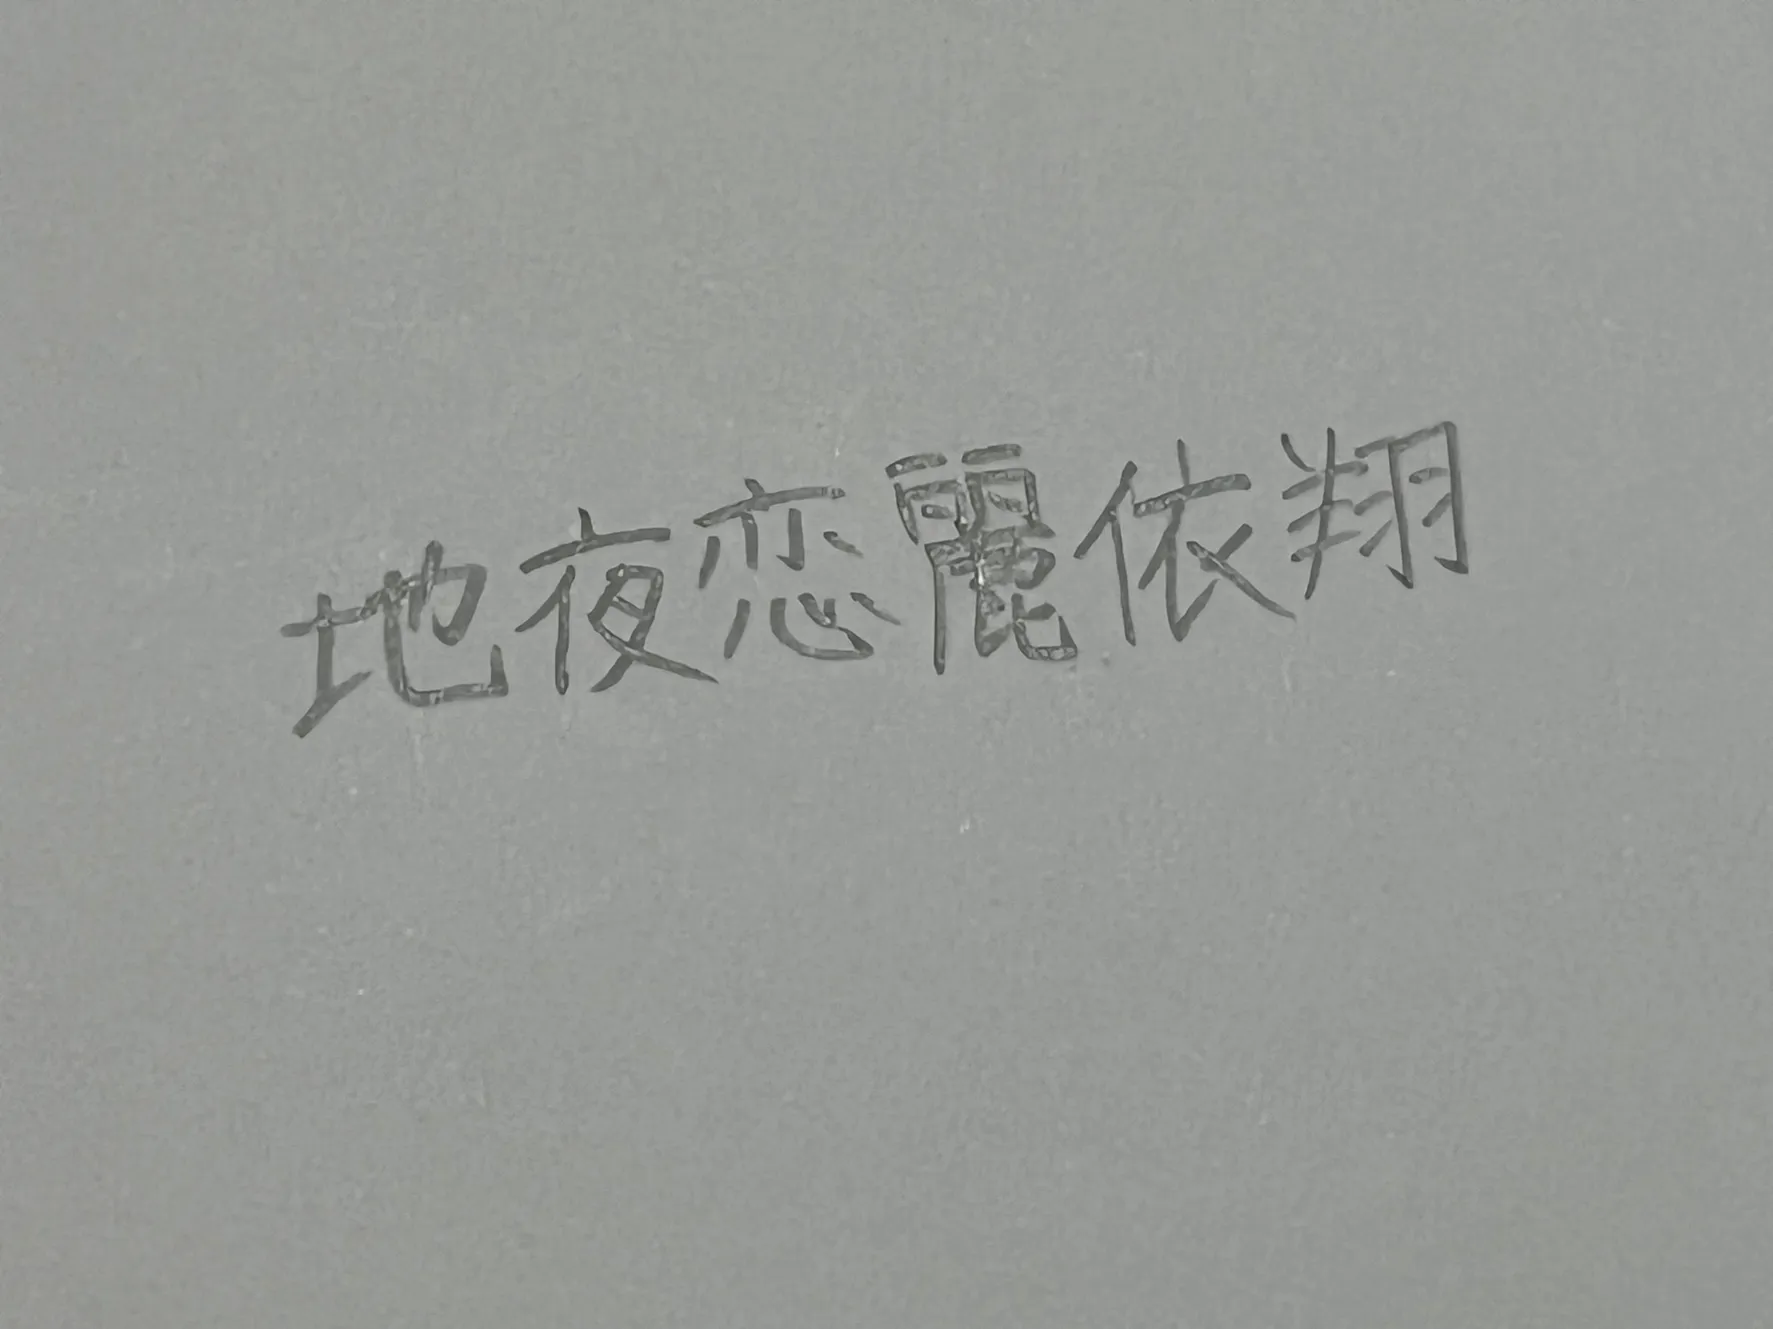 地夜恋麗依翔